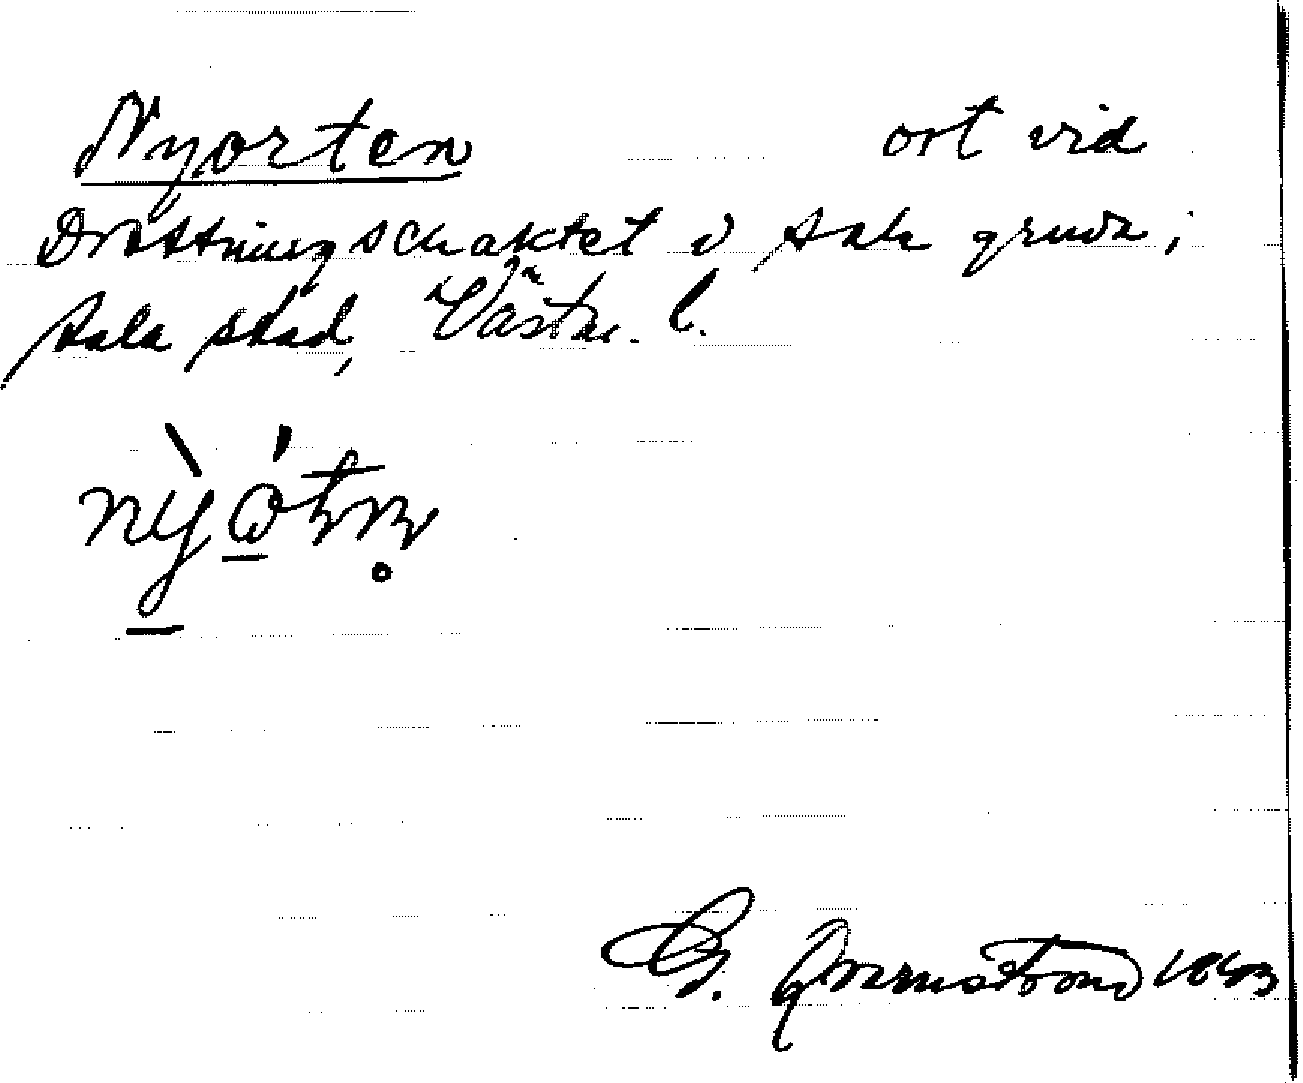 Nyorten ort vid
Drottningschaktet i Sala gruva,
Sala stad, Västm. l.
G. Qvarnström